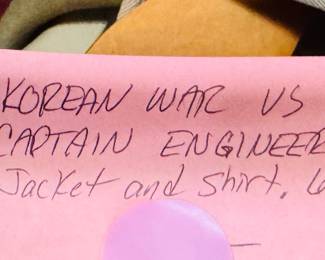 KOREAN WAR US
CAPTAIN ENGINEER
Jacket and Shirt.